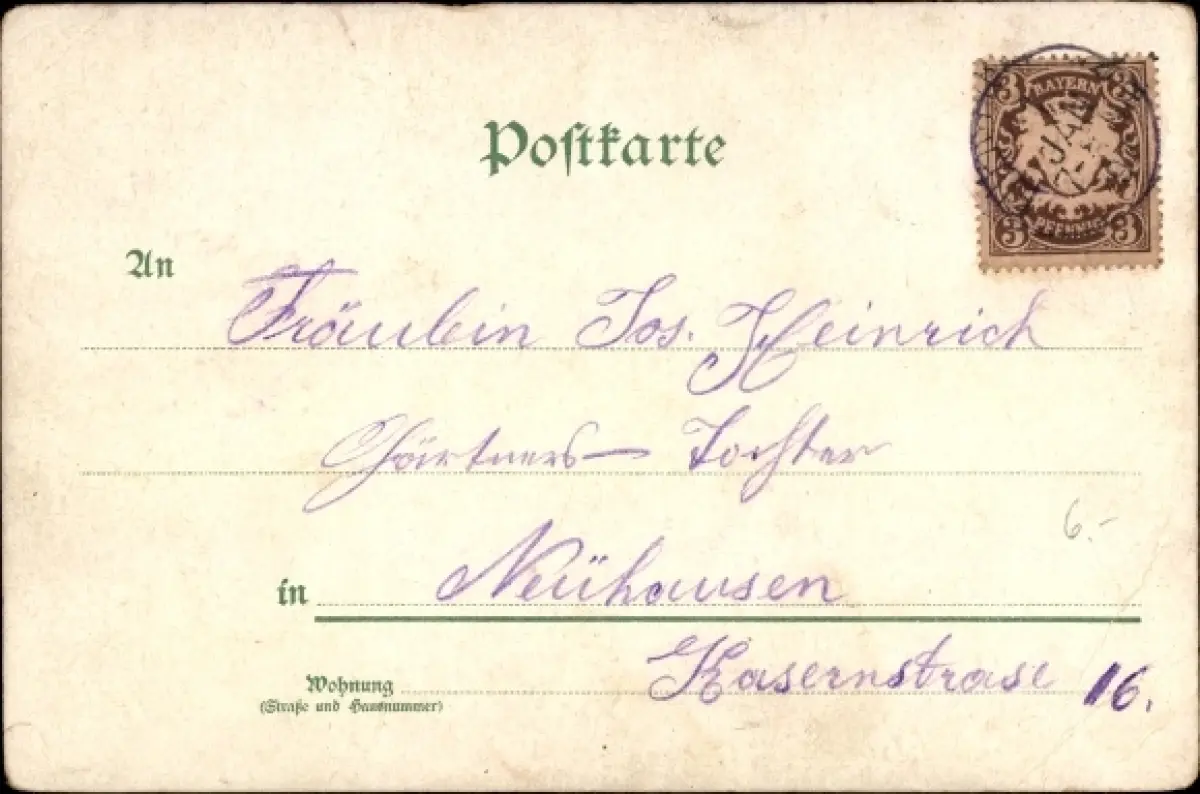 Postkarte
3 BAYERN 3
JAN
3 PFENNIG 3
An Fräulein Jos. Heinrich
Gärtners- Tochter
6.-
in Neuhausen
Wohnung Kasernstrase 16.
(Straße und Hausnummer)